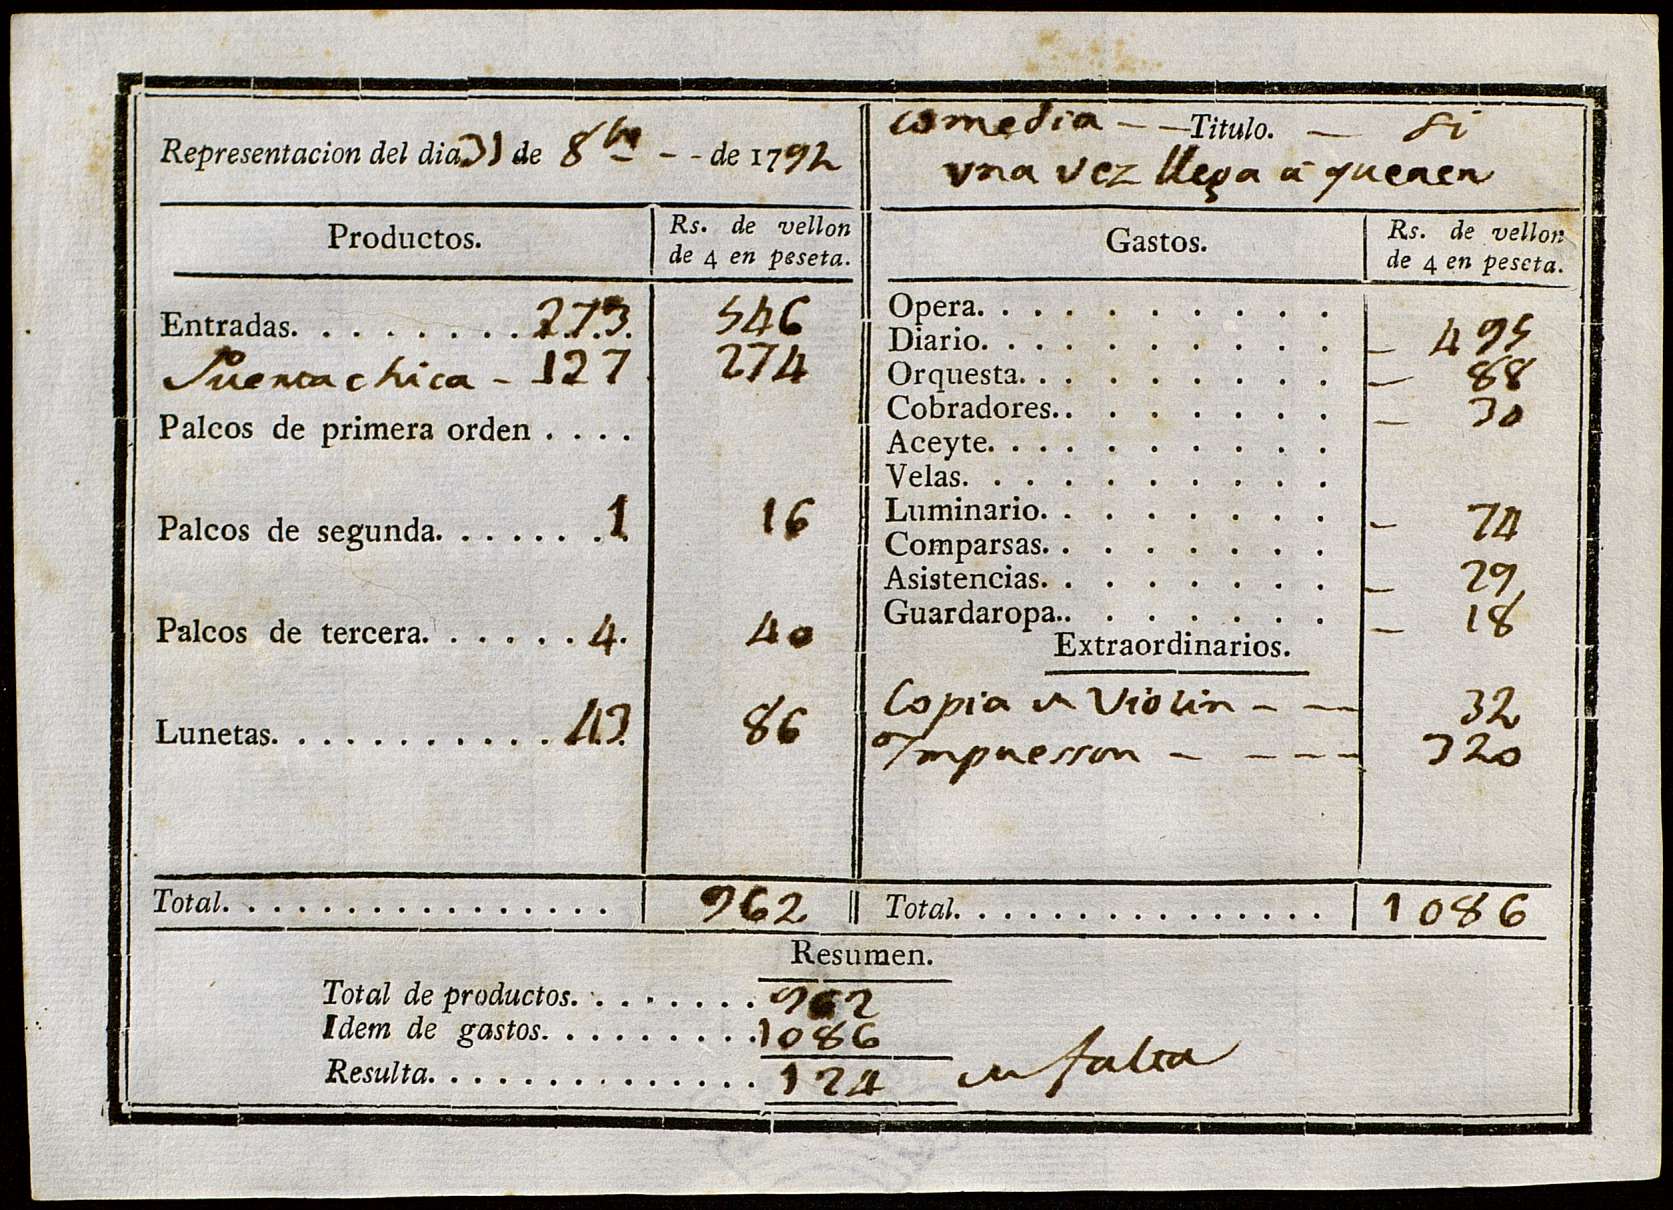 Representacion del dia 31 de 8bre - - de 1792
Productos.
Rs. de vellon
de 4 en peseta.
Entradas. . . . . . . . 273. 546
Puerta chica - 127 274
Palcos de primera orden . . . .
Palcos de segunda. . . . . . . 1 16
Palcos de tercera. . . . . . 4. 40
Lunetas. . . . . . . . . . . . 43. 86
Total. . . . . . . . . . . . . . . . 962
comedia - - Titulo. - si
una vez llega a querer
Gastos.
Rs. de vellon
de 4 en peseta.
Opera. . . . . . . . . .
Diario. . . . . . . . . . - 495
Orquesta. . . . . . . . . - 88
Cobradores.. . . . . . . - 30
Aceyte. . . . . . . . . .
Velas. . . . . . . . . .
Luminario. . . . . . . . - 74
Comparsas. . . . . . . .
Asistencias. . . . . . . . - 29
Guardaropa.. . . . . . . - 18
Extraordinarios.
Copia de Violin - - - 32
Impresion - - - - 320
Total. . . . . . . . . . . . . . . . 1086
Resumen.
Total de productos. . . . . . . . 962
Idem de gastos. . . . . . . . . . 1086
Resulta. . . . . . . . . . . . . . . 124 de falta